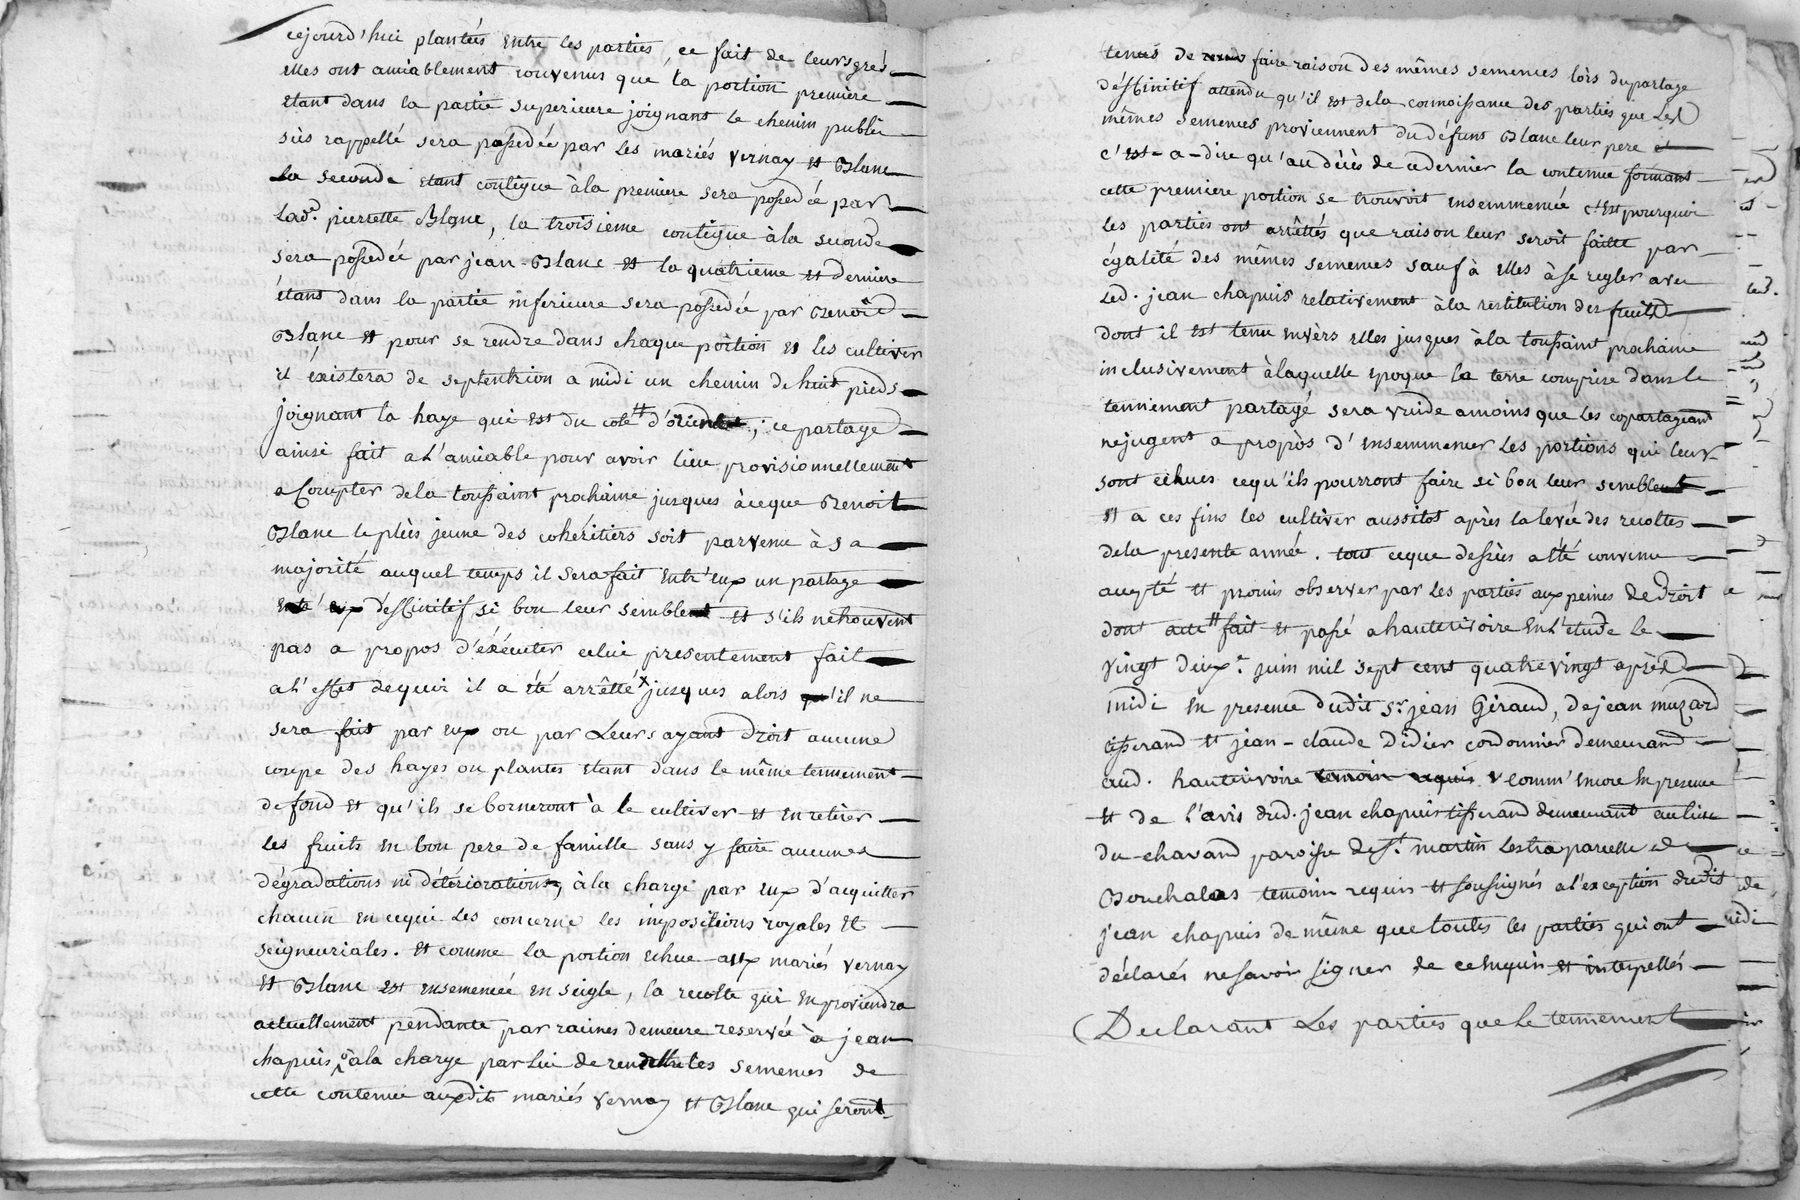 cejourd'hui plantées entre les parties, ce fait de leurs grés
elles ont amiablement convenus que la portion premiere
etant dans la partie superieure joignant le chemin public
sùs rappellé sera possedée par les mariés vernay et Blanc
la seconde etant contigue à la premiere sera possedée par
lad.e pierrette Blanc, la troisieme contigue à la seconde
sera possedée par jean-Blanc et la quatrieme et derniere
étant dans la partie inferieure sera possedée par Benoît
Blanc et pour se rendre dans chaque portion et les cultiver
il éxistera de septentrion a midi un chemin de huit pieds
joignant la haye qui est du coté d'orient; ce partage
ainsi fait a l'amiable pour avoir lieu provisionnellement
a Compter dela toussaint prochaine jusques à ceque Benoit
Blanc le plùs jeune des cohéritiers soit parvenu à sa
majorité auquel temps il sera fait entr'eux un partage
entr'eux déffinitif si bon leur semble et s'ils ne trouvent
pas a propos d'éxécuter celui presentement fait
a l'effet dequoi il a été arrêtté x jusques alors qu'il ne
sera fait par eux ou par Leurs ayant droit aucune
coupe des hayes ou plantes etant dans le même tennement
de fond et qu'ils se borneront à le cultiver et en retirer
les fruits en bon pere de famille sans y faire aucunes
dégradations ni détériorations, à la charge par eux d'acquitter
chacun en cequi les concerne les impositions royales et
seigneuriales. et comme la portion echue aux mariés vernay
et Blanc est ensemencée en seigle, la recolte qui en proviendra
actuellement pendante par racines demeure reservée à jean
chapuis à la charge par lui de rendre les semences de
cette contenue auxdits mariés vernay et Blanc qui seront
tenus de faire raison des mêmes semences lors du partage
déffinitif attendu qu'il est de la connoissance des parties que Les
mêmes semences proviennent du défunt Blanc leur pere et
c'est-a-dire qu'au décès de cedernier la contenue formant
cette premiere portion se trouvoit ensemmencée c'est pourquoi
les parties ont arrêttés que raison leur seroit faitte par
égalité des mêmes semences sauf à elles à se regler avec
led. jean chapuis relativement à la restitution des fruits
dont il est tenu envèrs elles jusques à la toussaint prochaine
inclusivement à laquelle epoque la terre comprise dans le
tennement partagé sera vuide amoins que les copartageant
ne jugent a propòs d'ensemmencer les portions qui leur
sont echues cequ'ils pourront faire si bon leur semble
et a ces fins les cultiver aussitot après la levée des recoltes
dela presente année. tout ceque dessùs a été convenu
accepté et promis observer par les parties aux peines de droit
dont acte fait et passé a hauterivoire en l'etude le
vingt deux.e juin mil sept cent quatre vingt après
midi en presence dudit s.r jean Giraud, de jean muzard
tisserand et jean-claude Didier cordonnier demeurand
aud. hauterivoire temoin requis v comm'encore en presence
et de l'avis dud. jean chapuis tisserand demeurant au lieu
du chavand paroisse de S.t martin Lestra parcelle de
Bouchalas temoin requis et soussignés a l'exception dudit
jean chapuis de même que toutes les parties qui ont
déclarés ne savoir signer de ce enquis et interpellés
Declarant Les parties que Le tennement